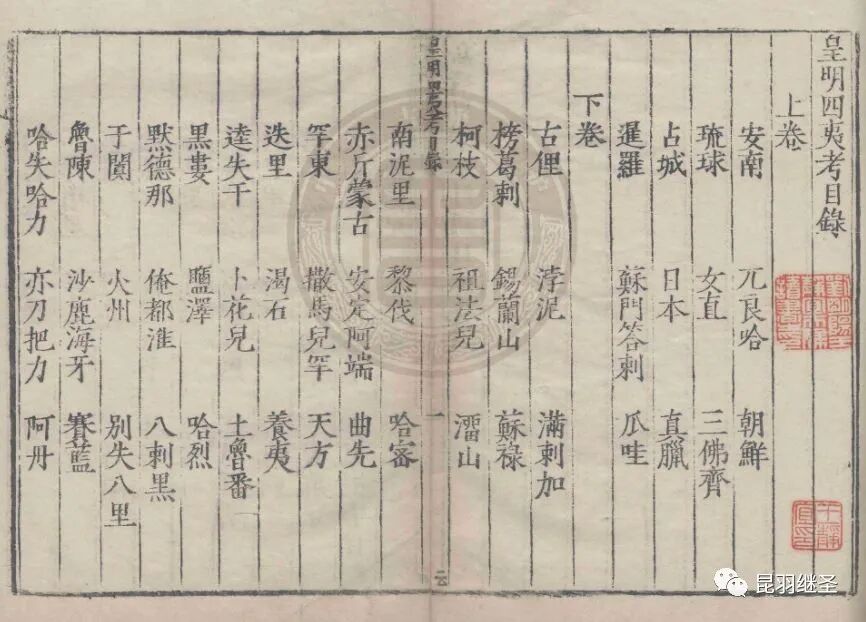 皇明四夷考目錄
上卷
安南 兀良哈 朝鮮
琉球 女直 三佛齊
占城 日本 真臘
暹羅 蘇門答剌 瓜哇
下卷
古俚 浡泥 滿剌加
榜葛剌 錫蘭山 蘇祿
柯枝 祖法兒 溜山
皇明四夷考目錄 一
南泥里 黎伐 哈密
赤斤蒙古 安定阿端 曲先
罕東 撒馬兒罕 天方
迭里 渴石 養夷
逹失干 卜花兒 土魯番
黑婁 鹽澤 哈烈
默德那 俺都淮 八剌黑
于闐 火州 別失八里
魯陳 沙鹿海牙 賽藍
哈失哈力 亦力把力 阿丹
昆羽继圣